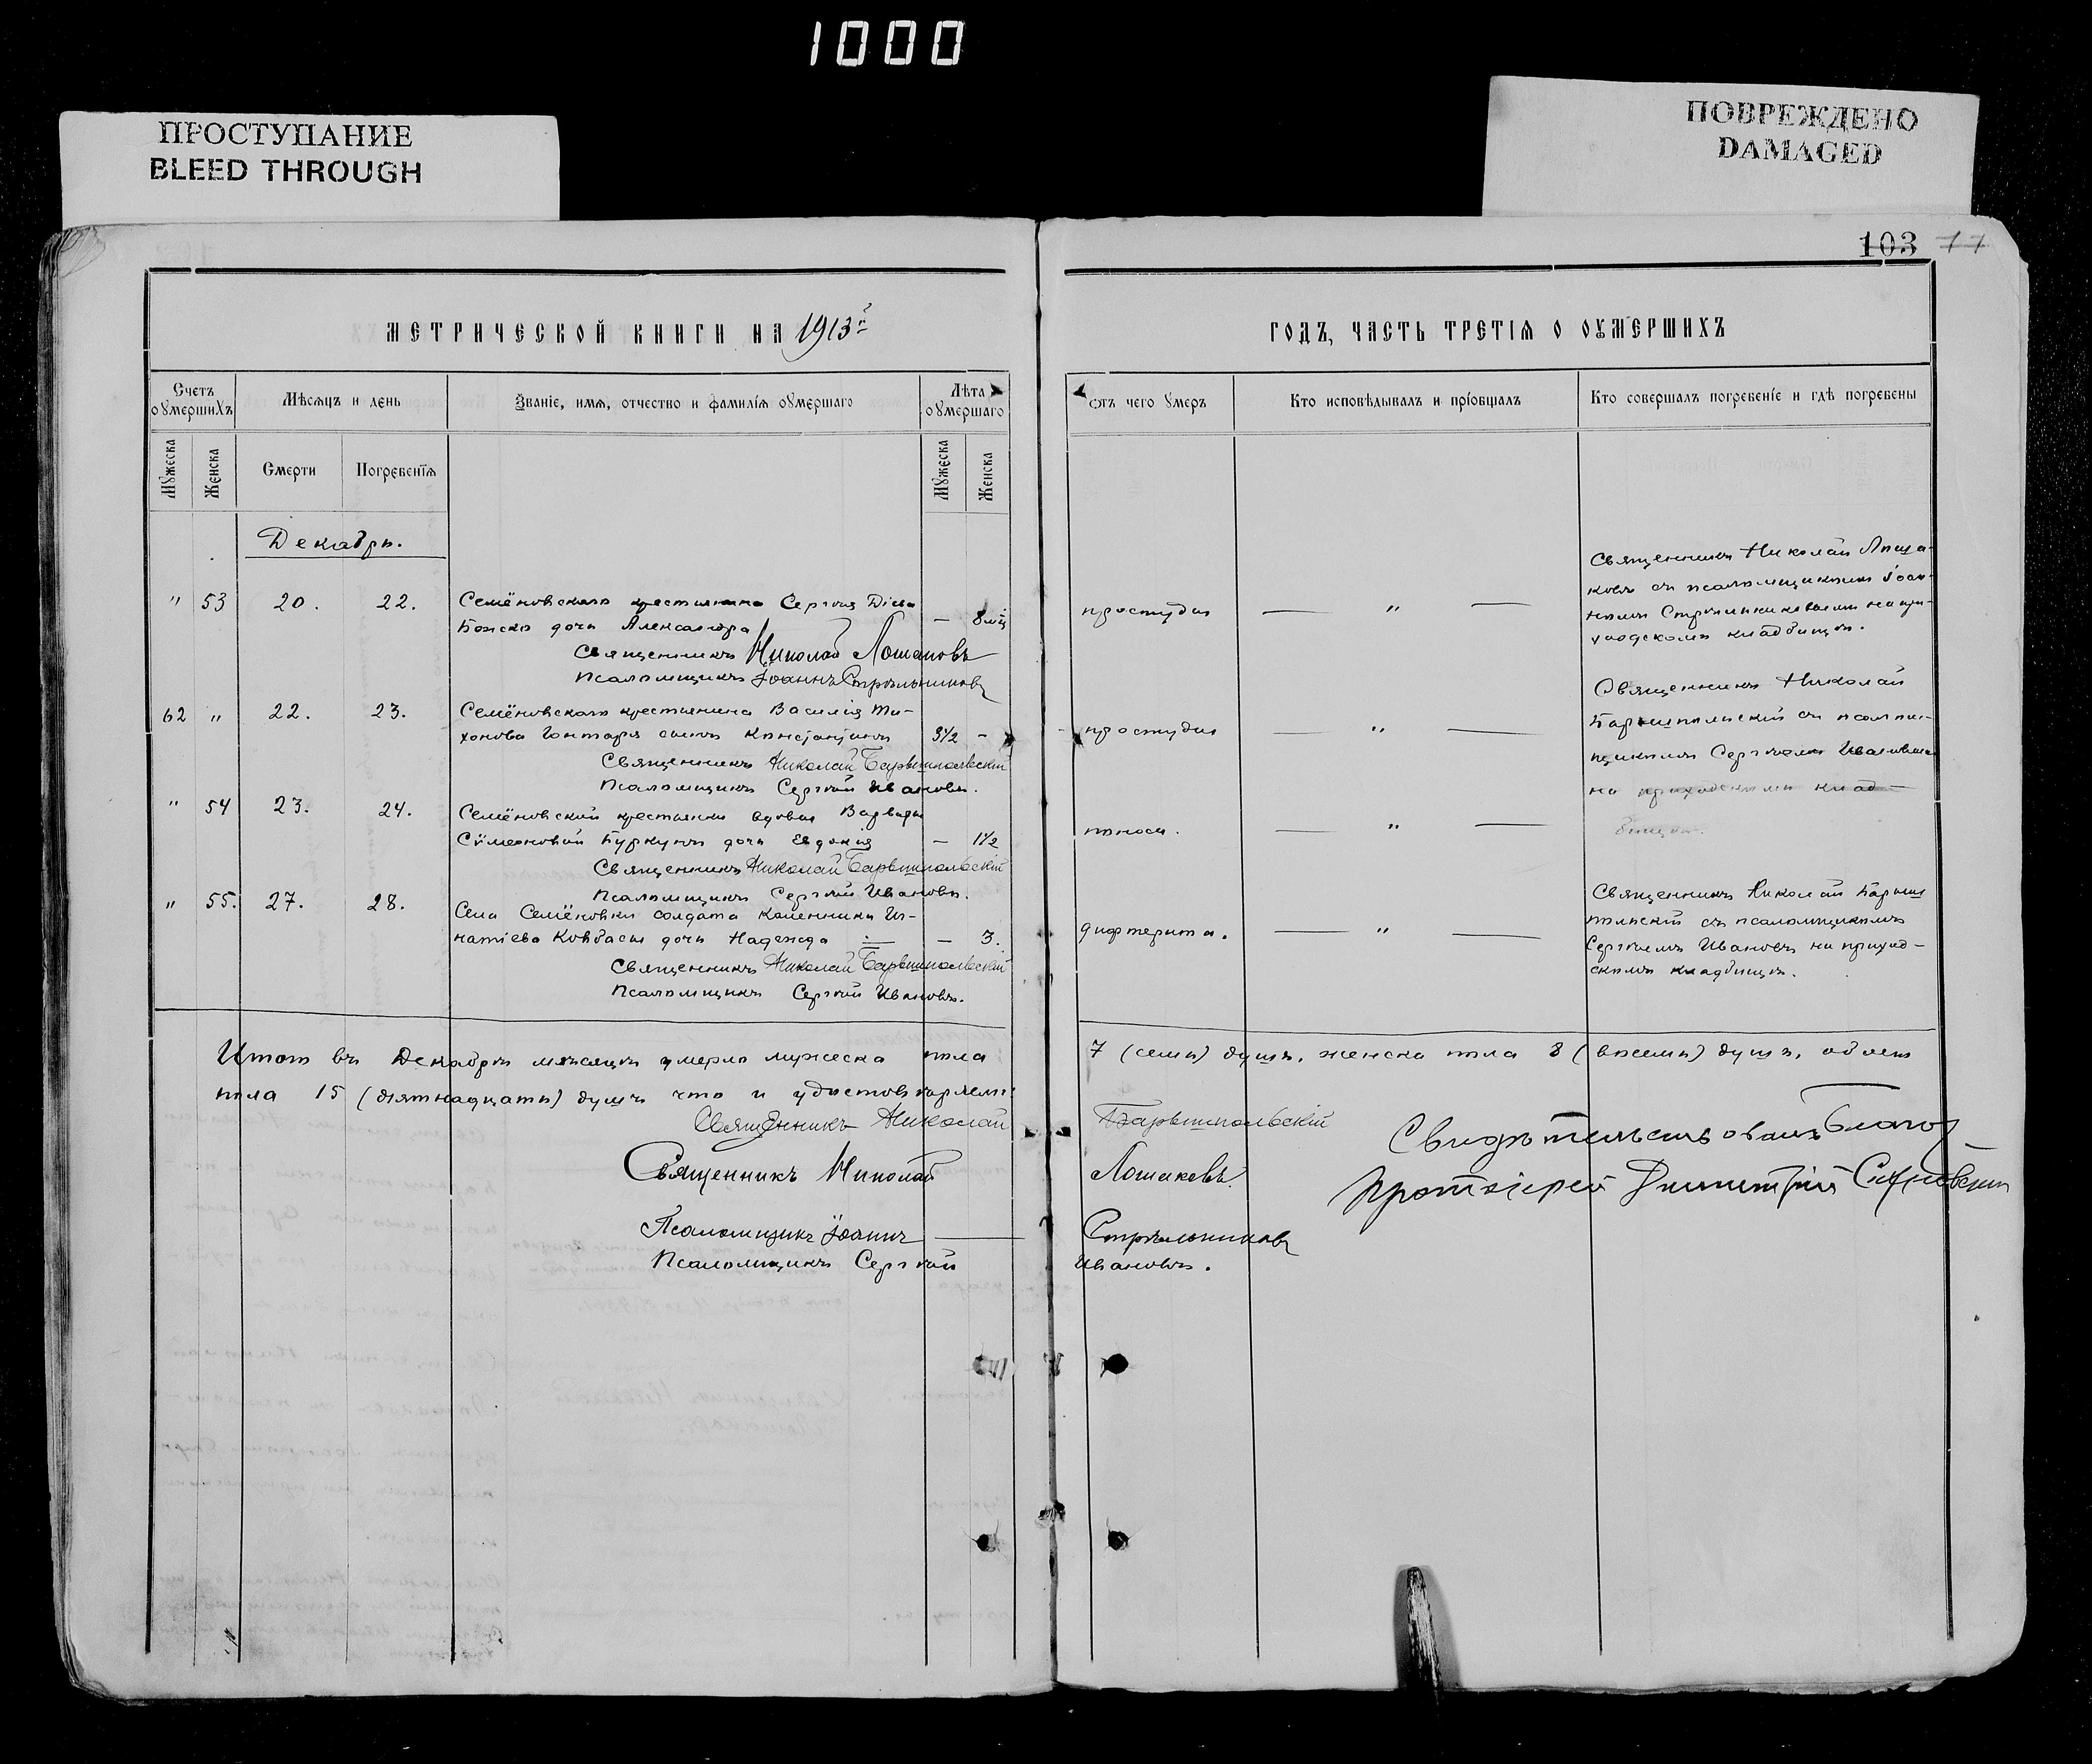 1000
ПРОСТУПАНИЕ
BLEED THROUGH
ПОВРЕЖДЕНО
DAMAGED
103 77
МЕТРИЧЕСКОЙ КНИГИ НА 1913й
ГОДЪ, ЧАСТЬ ТРЕТІѦ О ОУМЕРШИХЪ
Счетъ оумершихъ
Мѣсяцъ и день
Званіе, имѧ, отчество и фамилія оумершаго
Лѣта оумершаго
Отъ чего умеръ
Кто исповѣдывалъ и пріобщалъ
Кто совершалъ погребеніе и гдѣ погребены
Мужеска
Женска
Смерти
Погребенїѧ
Мужеска
Женска
Декабрь.
" 53 20. 22. Семёновскаго крестьянина Сергія
дочь Александра — 8 простуды — " —
Священникъ Николай Лошаковъ
Псаломщикъ Іоаннъ Стрѣльниковъ
Священникъ Николай Лоша-
ковъ съ псаломщикомъ Іоан-
номъ Стрѣльниковымъ на при-
ходскомъ кладбищѣ.
62 " 22. 23. Семёновскаго крестьянина Василія Ти-
хонова Гонтаря сынъ 3½ – простуды — " —
Священникъ Николай Барышпольскій
Псаломщикъ Сергѣй Ивановъ.
Священникъ Николай
Барышпольскій съ псалом-
щикомъ Сергѣемъ Ивановымъ
на приходскомъ клад-
бищѣ.
" 54 23. 24. Семёновской крестьянки вдовы Варвары
Сѵмеоновой Буркунъ дочь Евдокія — 1½ поноса. — " —
Священникъ Николай Барышпольскій
Псаломщикъ Сергѣй Ивановъ.
" 55. 27. 28. Села Семёновки солдата Каленника Иг-
натіева Ковбасы дочь Надежда — — 3. дифтерита. — " —
Священникъ Николай Барышпольскій
Псаломщикъ Сергѣй Ивановъ.
Священникъ Николай Барыш
польскій съ псаломщикомъ
Сергѣемъ Ивановъ на приход-
скомъ кладбищѣ.
Итого въ Декабрѣ мѣсяцѣ умерло мужеска пола 7 (семь) душъ, женска пола 8 (восемь) душъ, обоего
пола 15 (пятнадцать) душъ что и удостовѣряемъ:
Священникъ Николай Барышпольскій
Священникъ Николай Лошаковъ.
Псаломщикъ Іоаннъ — Стрѣльниковъ
Псаломщикъ Сергѣй Ивановъ.
Свидѣтельствовалъ Благоч
Протоіерей Димитрій